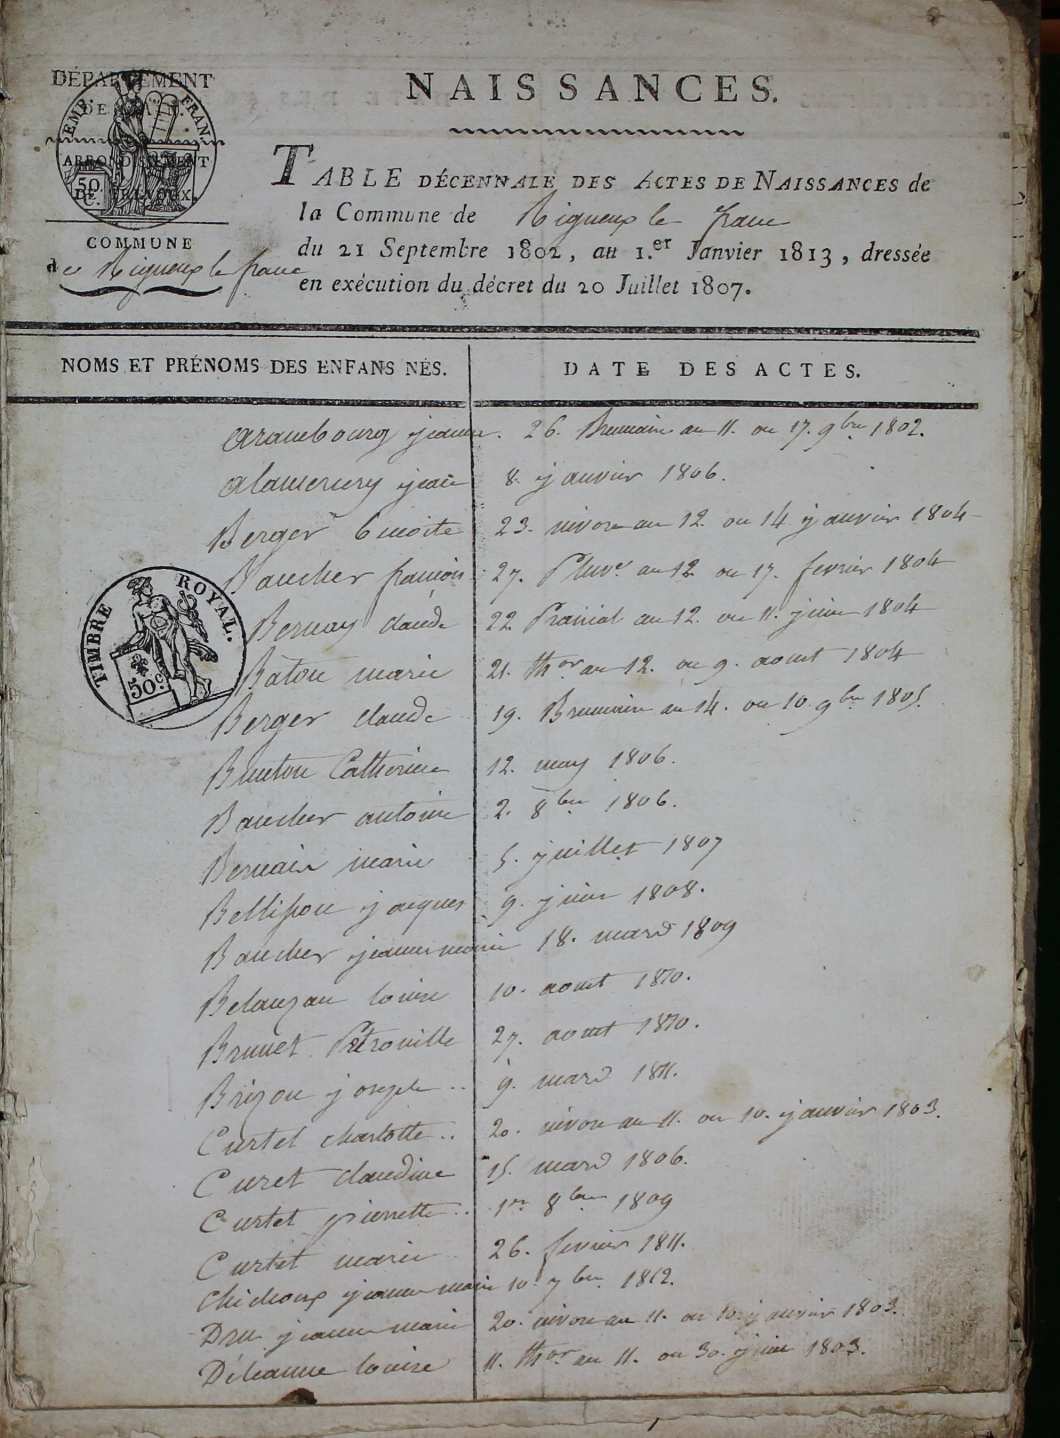 DÉPARTEMENT
DE L'AIN.
ARRONDISSEMENT
DE TRÉVOUX.
EMP. FRAN.
50
C.
COMMUNE
de Rigneux le franc
NAISSANCES.
TABLE DÉCENNALE DES ACTES DE NAISSANCES de
la Commune de Rigneux le franc
du 21 Septembre 1802, au 1.er Janvier 1813, dressée
en exécution du décret du 20 Juillet 1807.
NOMS ET PRÉNOMS DES ENFANS NÉS. DATE DES ACTES.
Arambourg jeanne. 26. Brumaire an 11. ou 17. 9bre 1802.
Alamercery jean 8. janvier 1806.
Berger Benoite 23. nivose an 12 ou 14 janvier 1804
Baucher françois 27. Pluve. an 12 ou 17. fevrier 1804
TIMBRE ROYAL.
50c
Bernay claude 22 Prairial an 12. ou 11. juin 1804
Bâton marie 21. thor an 12. ou 9. aoust 1804
Berger claude 19. Brumaire an 14. ou 10. 9bre 1805.
Buneton Catherine 12. may 1806.
Baucher antoine 2. 8bre 1806.
Bernain marie 5. juillet 1807
Bellisson jacques 9. juin 1808.
Baucher jeanne marie 18. mars 1809
Belauzan louise 10. aoust 1810.
Brunet Pétronille 27. aoust 1810.
Brizon joseph .. 9. mars 1811.
Curtet charlotte .. 20. nivose an 11. ou 10. janvier 1803.
Curet claudine 15. mars 1806.
Curtet pierrette .. 1er 8bre 1809
Curtet marie 26. fevrier 1811.
Chichoux jeanne marie 10. 7bre 1812.
Dru jeanne marie 20. nivose an 11. ou 10. janvier 1803.
Déleanne louise 11. thor an 11. ou 30. juin 1803.